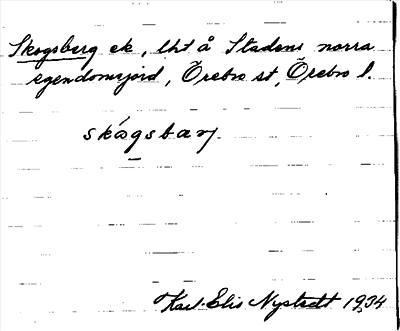 Skogsberg ek, lht å Stadens norra
egendomsjord, Örebro st, Örebro l.
skógsbarj
Karl-Elis Nystedt 1934